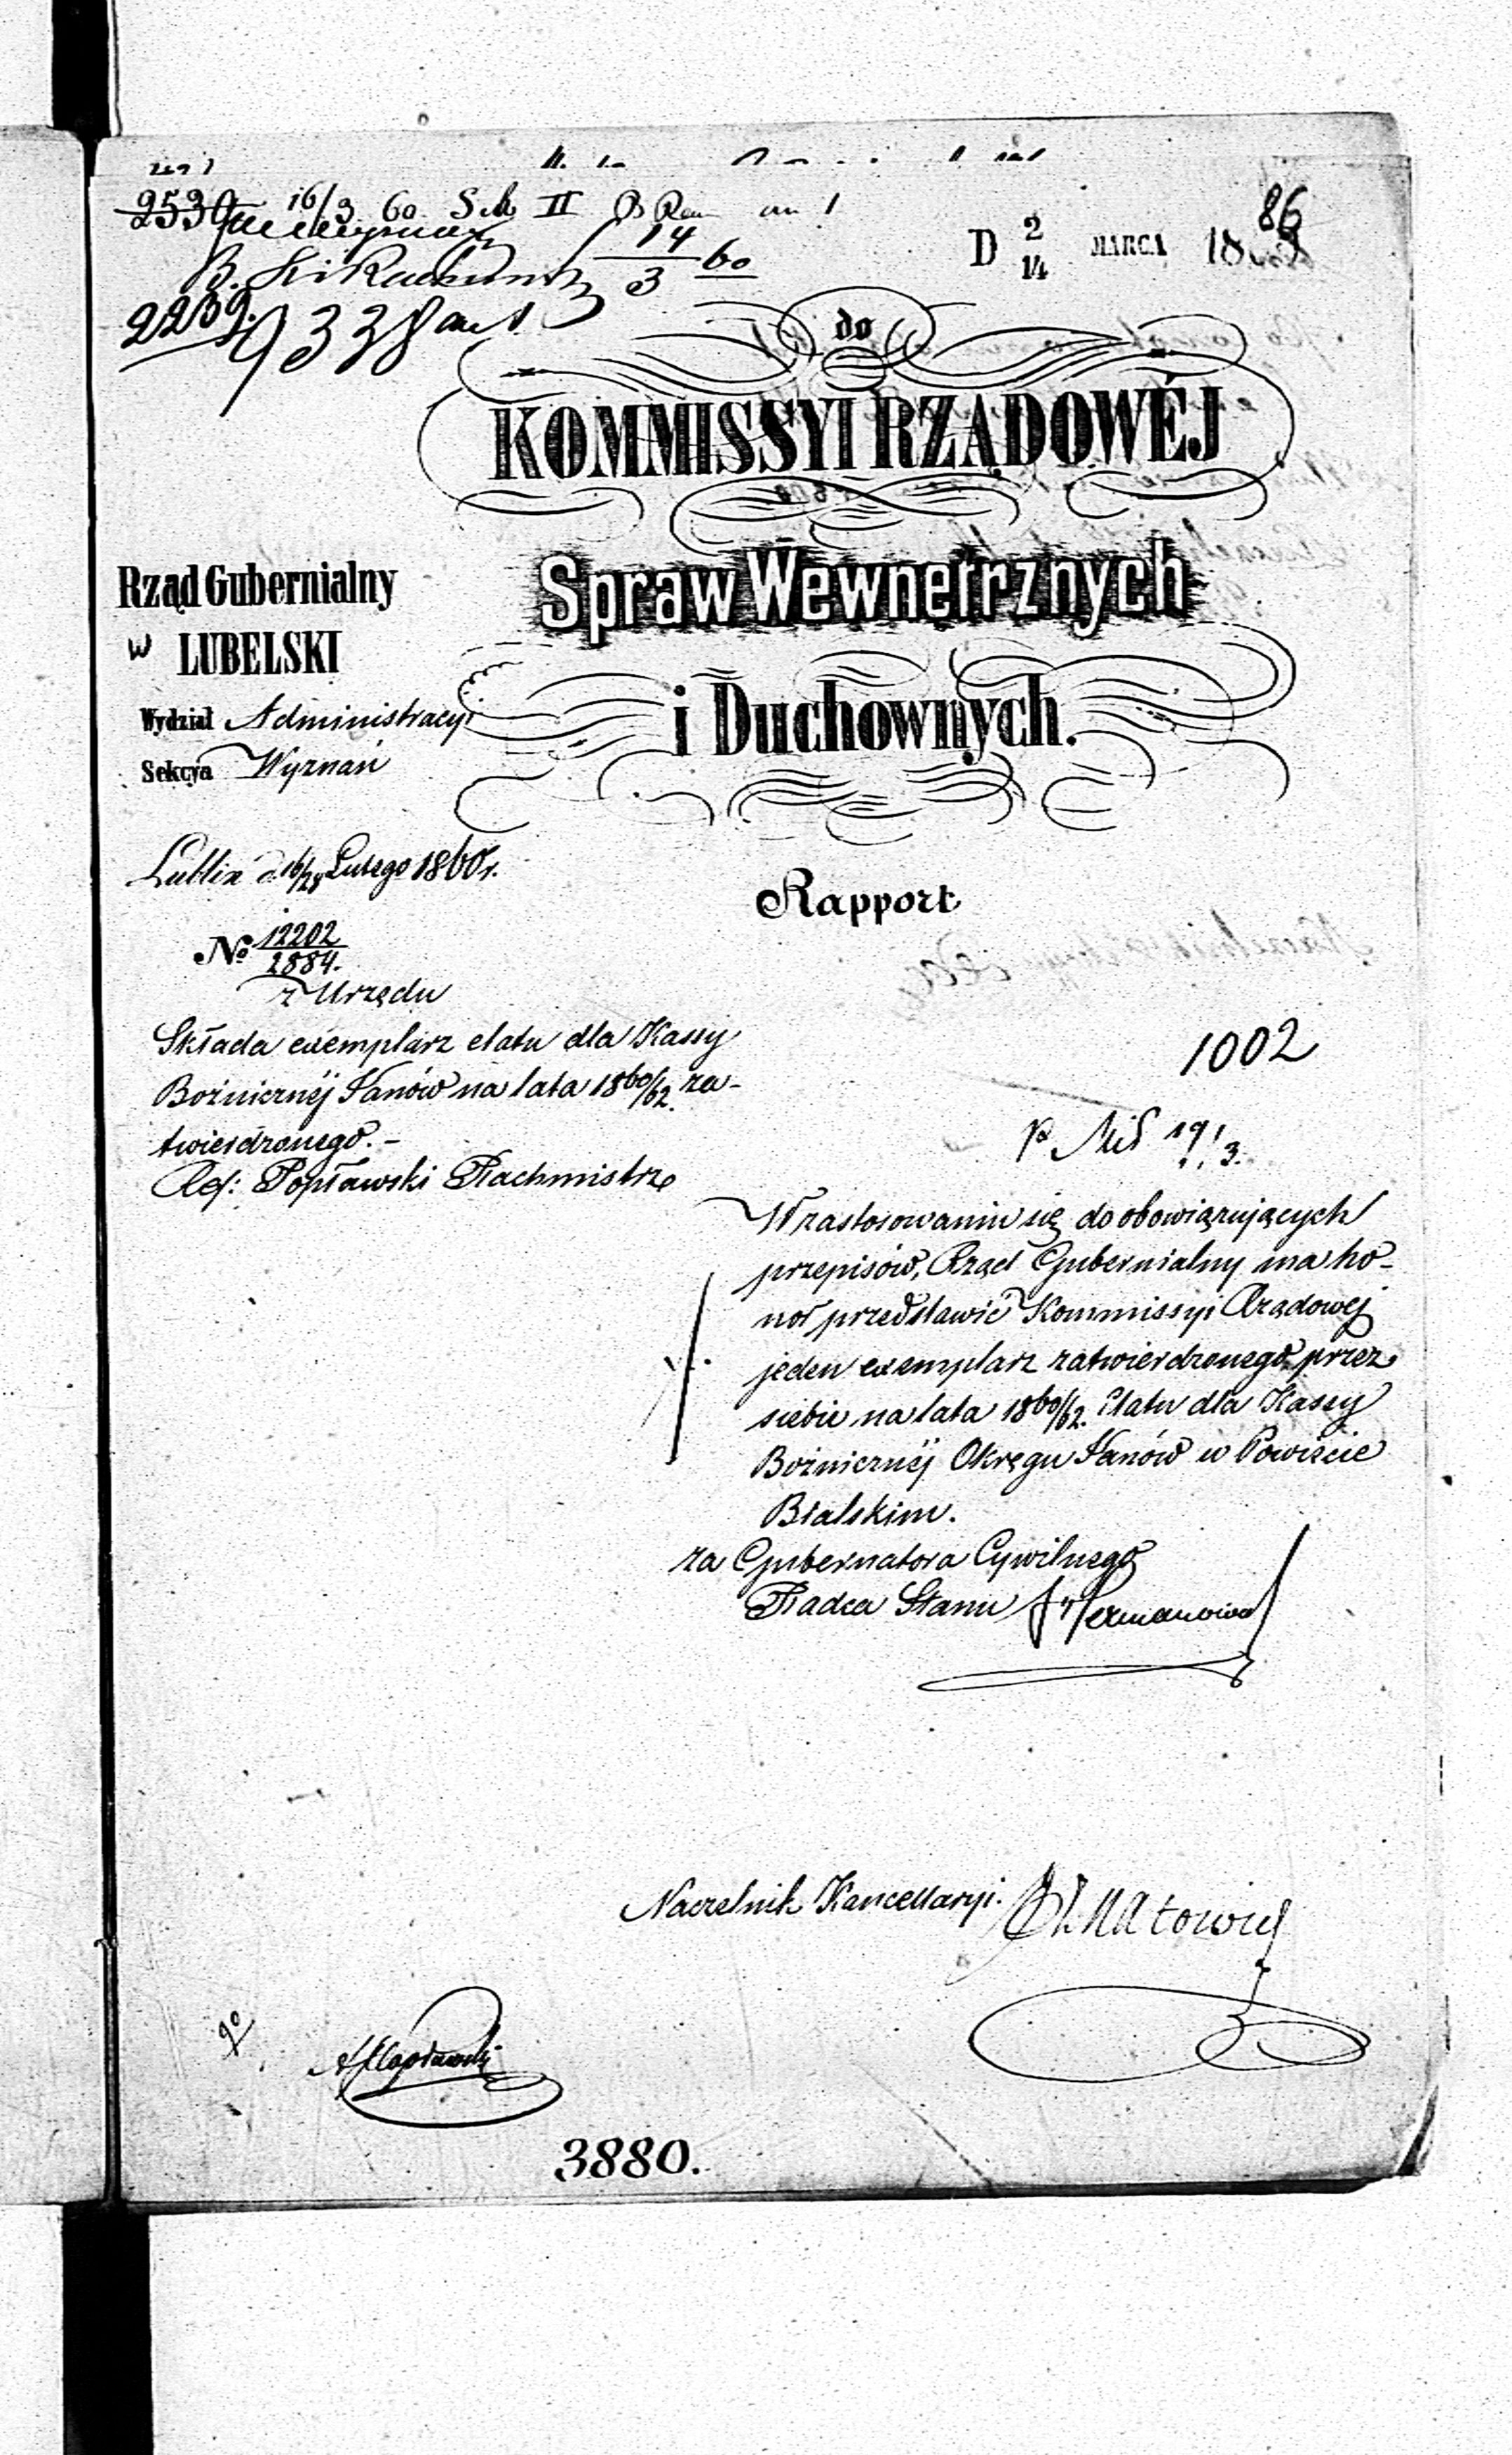 2530 16/3 60 II
14/3 60
2239.
9338
D 2/14 MARCA 18
86
do
KOMMISSYI RZĄDOWÉJ
Spraw Wewnetrznych
i Duchownych.
Rząd Gubernialny
w LUBELSKI
Wydział Administracyi
Sekcya Wyznań
Lublin d. 16/28 Lutego 1860 r.
Rapport
No 12202/2884.
z Urzędu
Składa exemplarz etatu dla Kassy
Bożnicznéj Janów na lata 1860/62. za-
twierdzonego. -
Ref: Popławski Rachmistrz
1002
19/3.
W zastosowaniu się do obowiązujących
przepisów, Rząd Gubernialny ma ho-
nor przedstawić Kommissyi Rządowej
jeden exemplarz zatwierdzonego przez
siebie na lata 1860/62. Etatu dla Kassy
Bożnicznéj Okręgu Janów w Powiecie
Bialskim.
za Gubernatora Cywilnego
Radca Stanu
Naczelnik Kancellaryi.
3880.